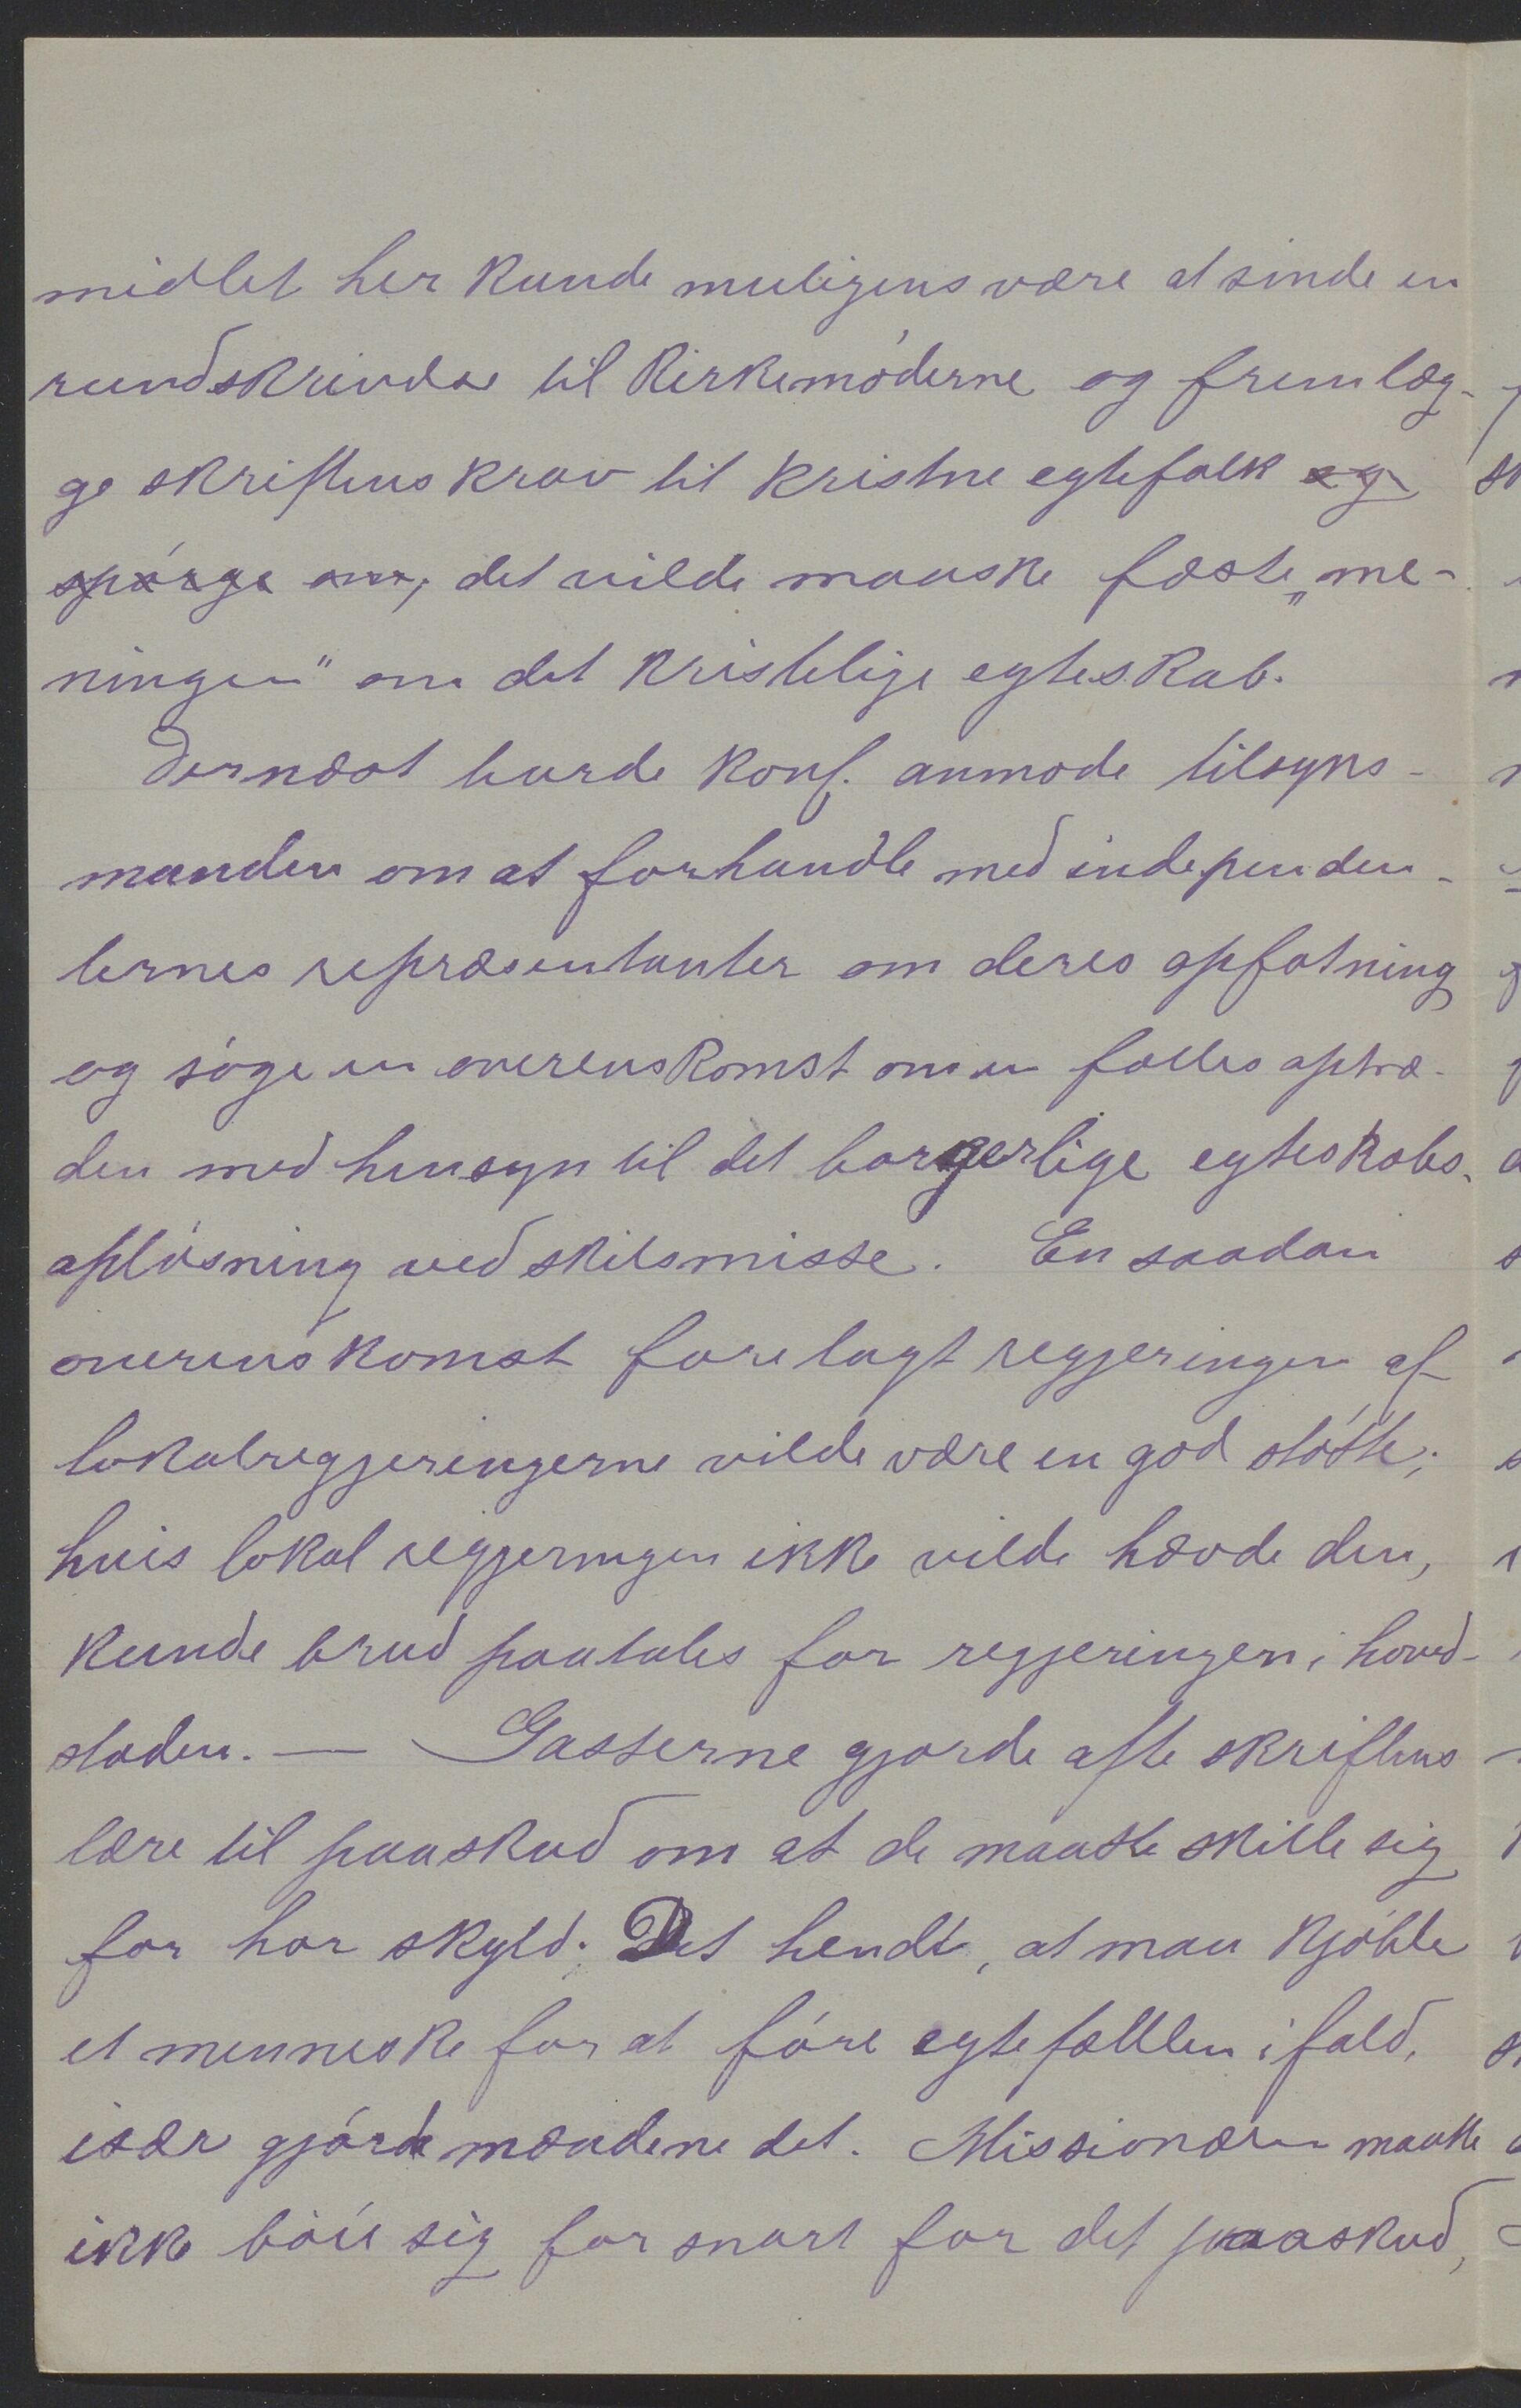 midlet her kunde muligens være at sende en
rundskrivelse til kirkemøderne og fremlæg-
ge skriftens krav til kristne egtefolk og
spørge om, det vilde maaske fæste „me-
ningen" om det kristelige egteskab.
Dernæst burde konf. anmode tilsyns-
manden om at forhandle med independen-
ternes repræsentanter om deres opfatning
og søge en overenskomst om en fælles optræ-
den med hensyn til det borgerlige egteskabs
opløsning ved skilsmisse. En saadan
overenskomst forelagt regjeringen af
lokalregjeringerne vilde være en god støtte;
hvis lokal regjeringen ikke vilde hævde den,
kunde brud paatales for regjeringen i hoved-
staden. — Gasserne gjorde ofte skriftens
lære til paaskud om at de maatte skille sig
for hor skyld. Det hendte, at man kjøbte
et menneske for at føre egtefællen i fald,
især gjorde mændene det. Missionæren maatte
ikke bøie sig for snart for det paaskud,